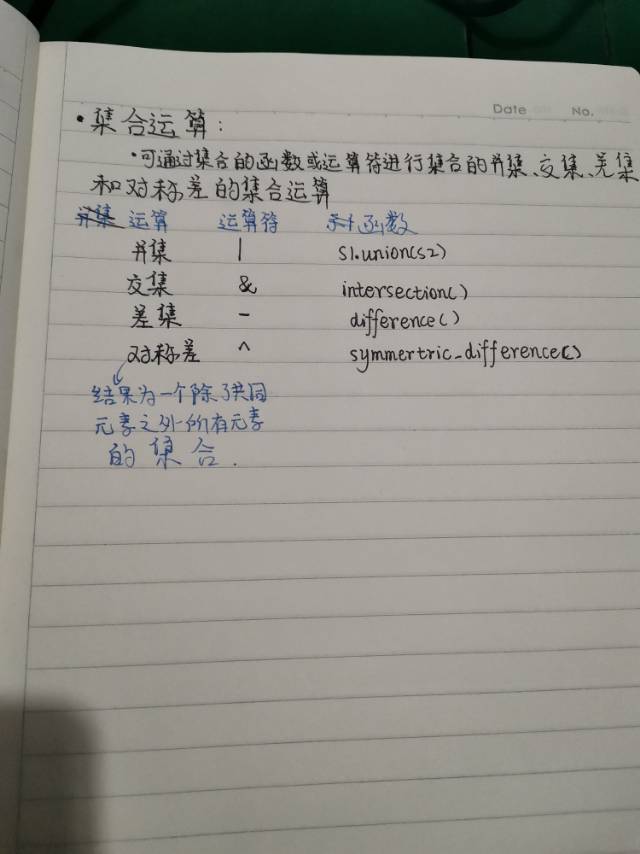 Date No.
·集合运算:
·可通过集合的函数或运算符进行集合的并集、交集、差集
和对称差的集合运算
运算 运算符 函数
并集 | s1.union(s2)
交集 & intersection()
差集 - difference()
对称差 ^ symmertric_difference()
结果为一个除了共同
元素之外的所有元素
的集合.